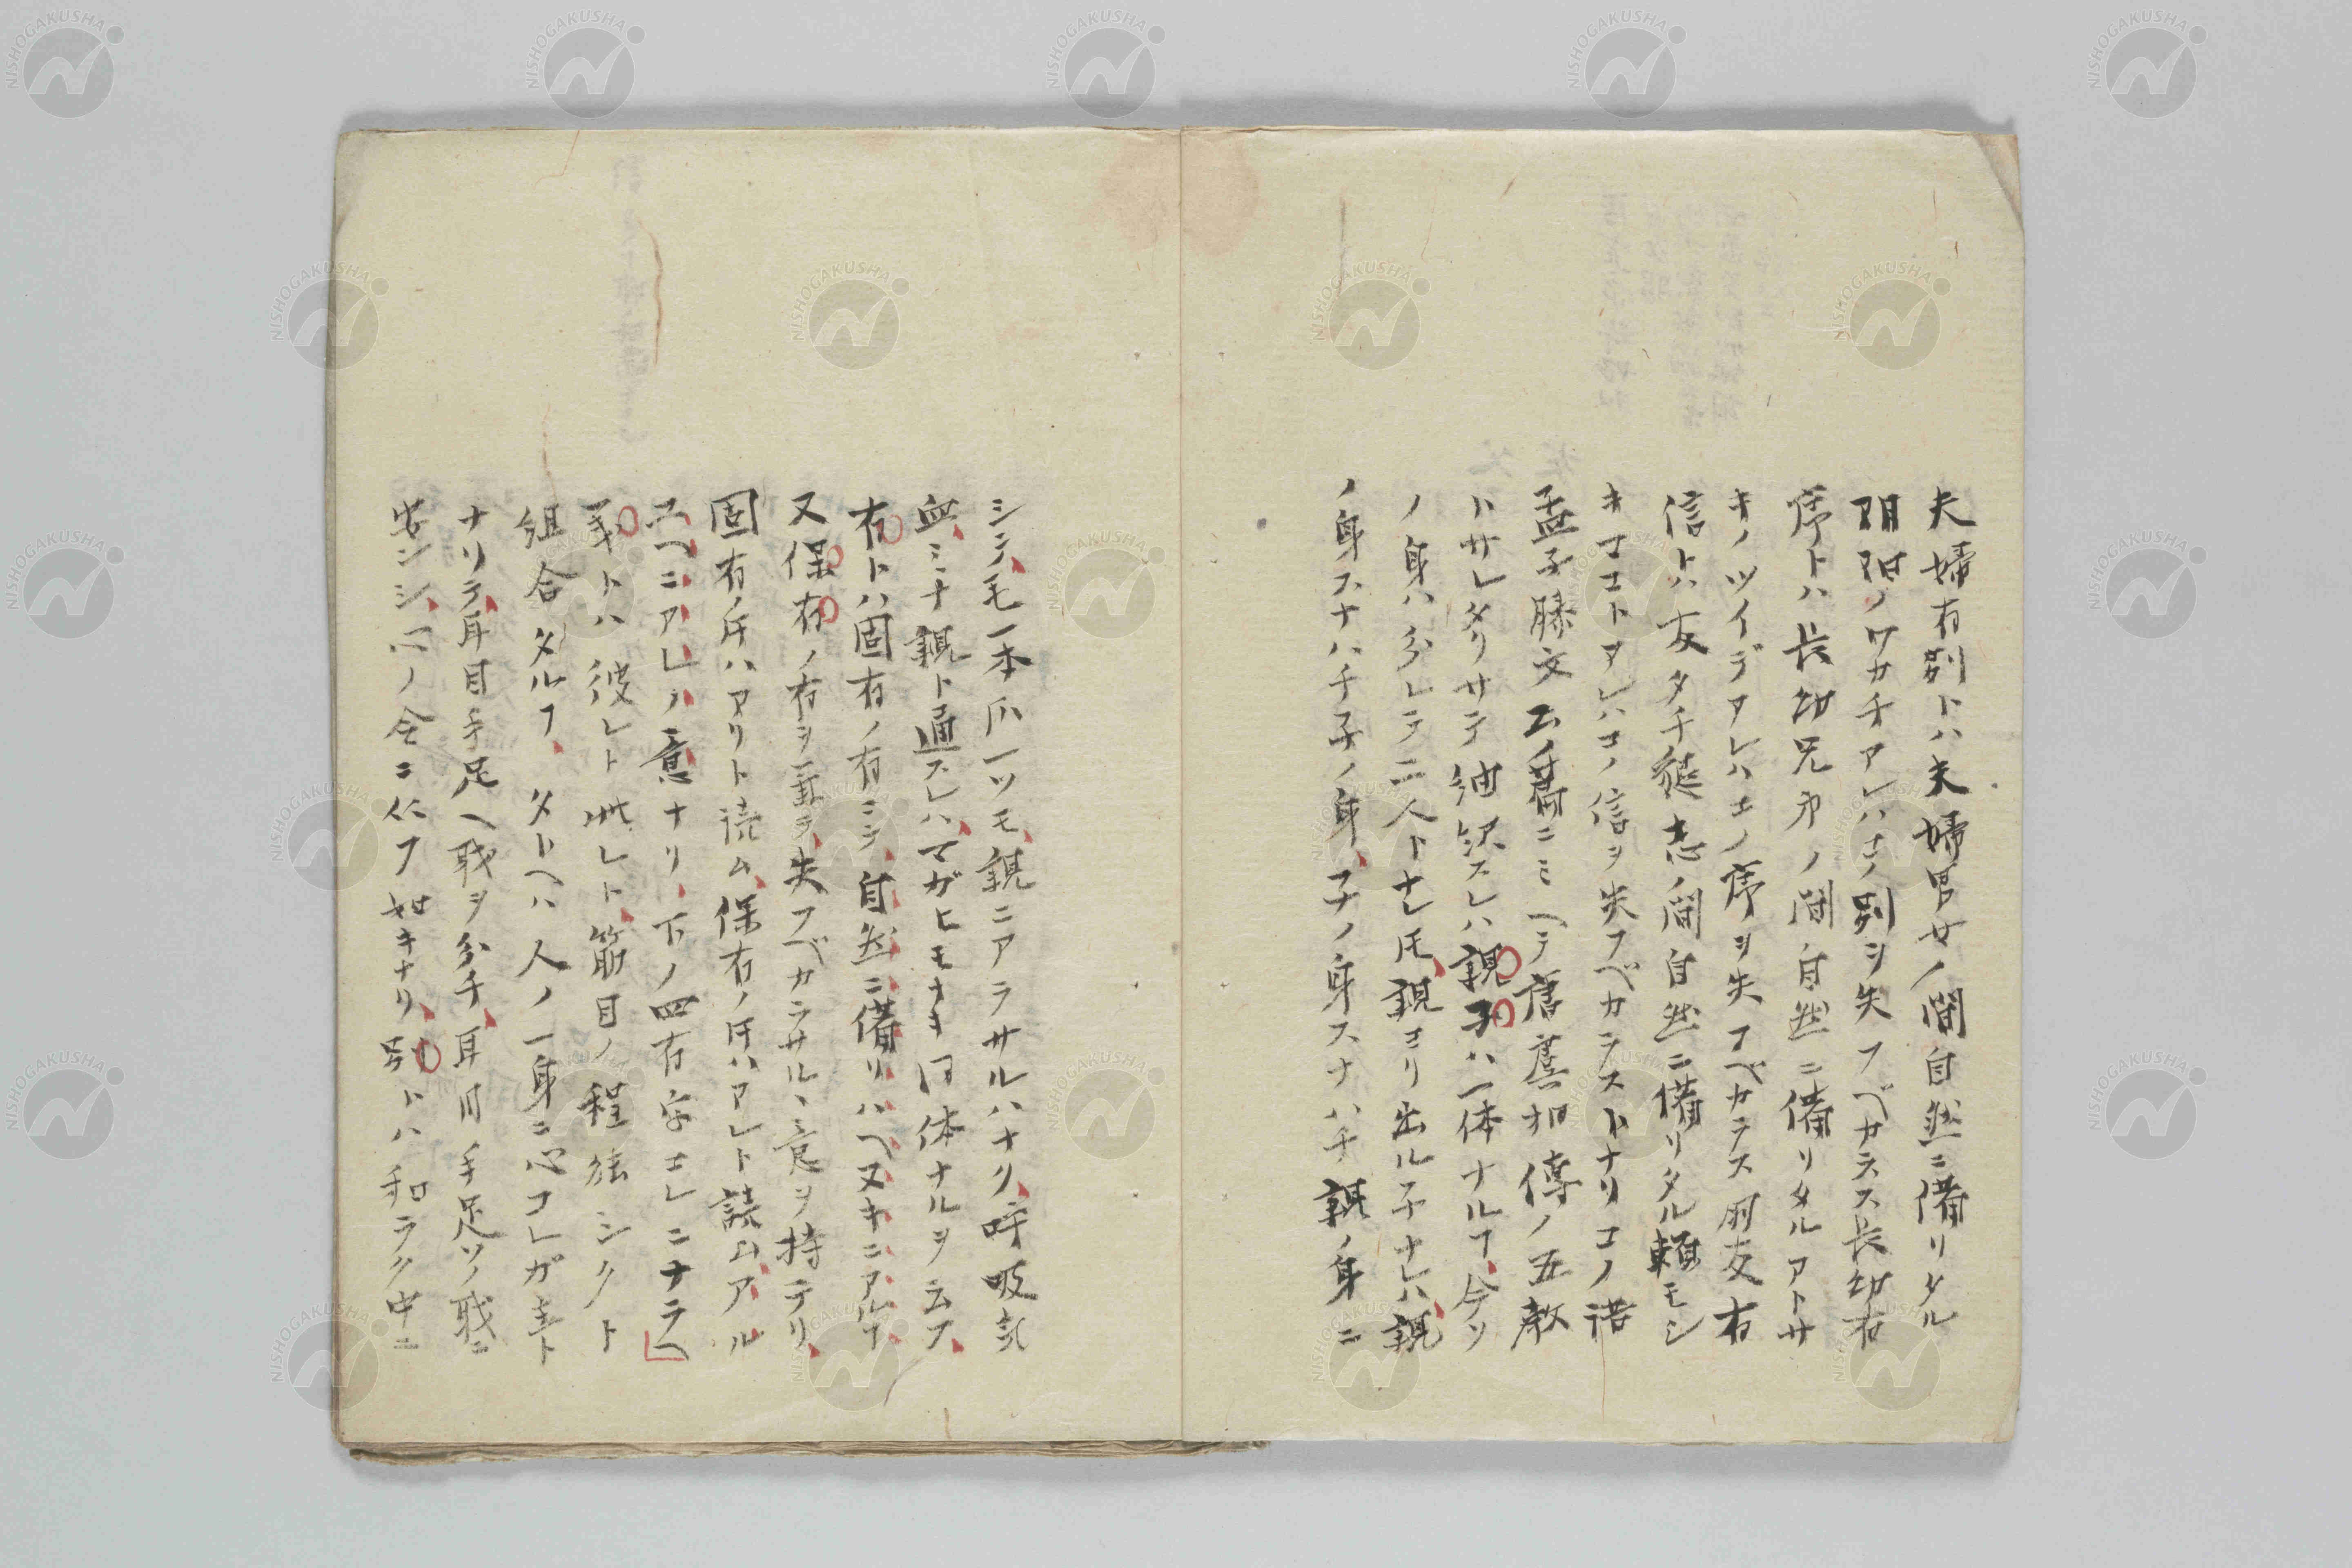 夫婦有別トハ夫婦男女ノ間自然ニ備リタル
陰陽ノワカチアレハ其ノ別ヲ失フベカラス長幼有
序トハ長幼兄弟ノ間自然ニ備リタルアトサ
キノツイデアレハ其ノ序ヲ失フベカラス朋友有
信トハ友タチ徒志ノ間自然ニ備リタル頼モシ
キマコトアレハコノ信ヲ失フベカラストナリコノ諸
孟子滕文公ノ篇ニミヘテ唐虞相傳ノ五教
トサレタリサテ細択スレハ親子ハ一体ナルヿ今ソ
ノ身ハ分レテ二人トナレ𪜈親ヨリ出ル子ナレハ親
ノ身スナハチ子ノ身子ノ身スナハチ親ノ身ニ
シテ毛一本爪一ツモ親ニアラサルハナク呼吸氣
血ミナ親ト通スレハマガヒモナキ同体ナルヲ云フ
有トハ固有ノ有ニシテ自然ニ備リハヘヌキニアルヿ
又保有ノ有ヲ重テ失フベカラサルノ意ヲ持テリ
固有ノ片ハアリト読ム保有ノ片ハアレト読ムアル
ユヘニアレノ意ナリ下ノ四有字コレニナラヘ
義トハ彼レト此レト筋目ノ程能シクト
組合タルヿ タトヘハ人ノ一身ニ心コレガ主ト
ナリテ耳目手足ヘ職ヲ分チ耳目手足ソノ職ニ
安ンシ心ノ令ニ従フ如キナリ別トハ和ラク中ニ